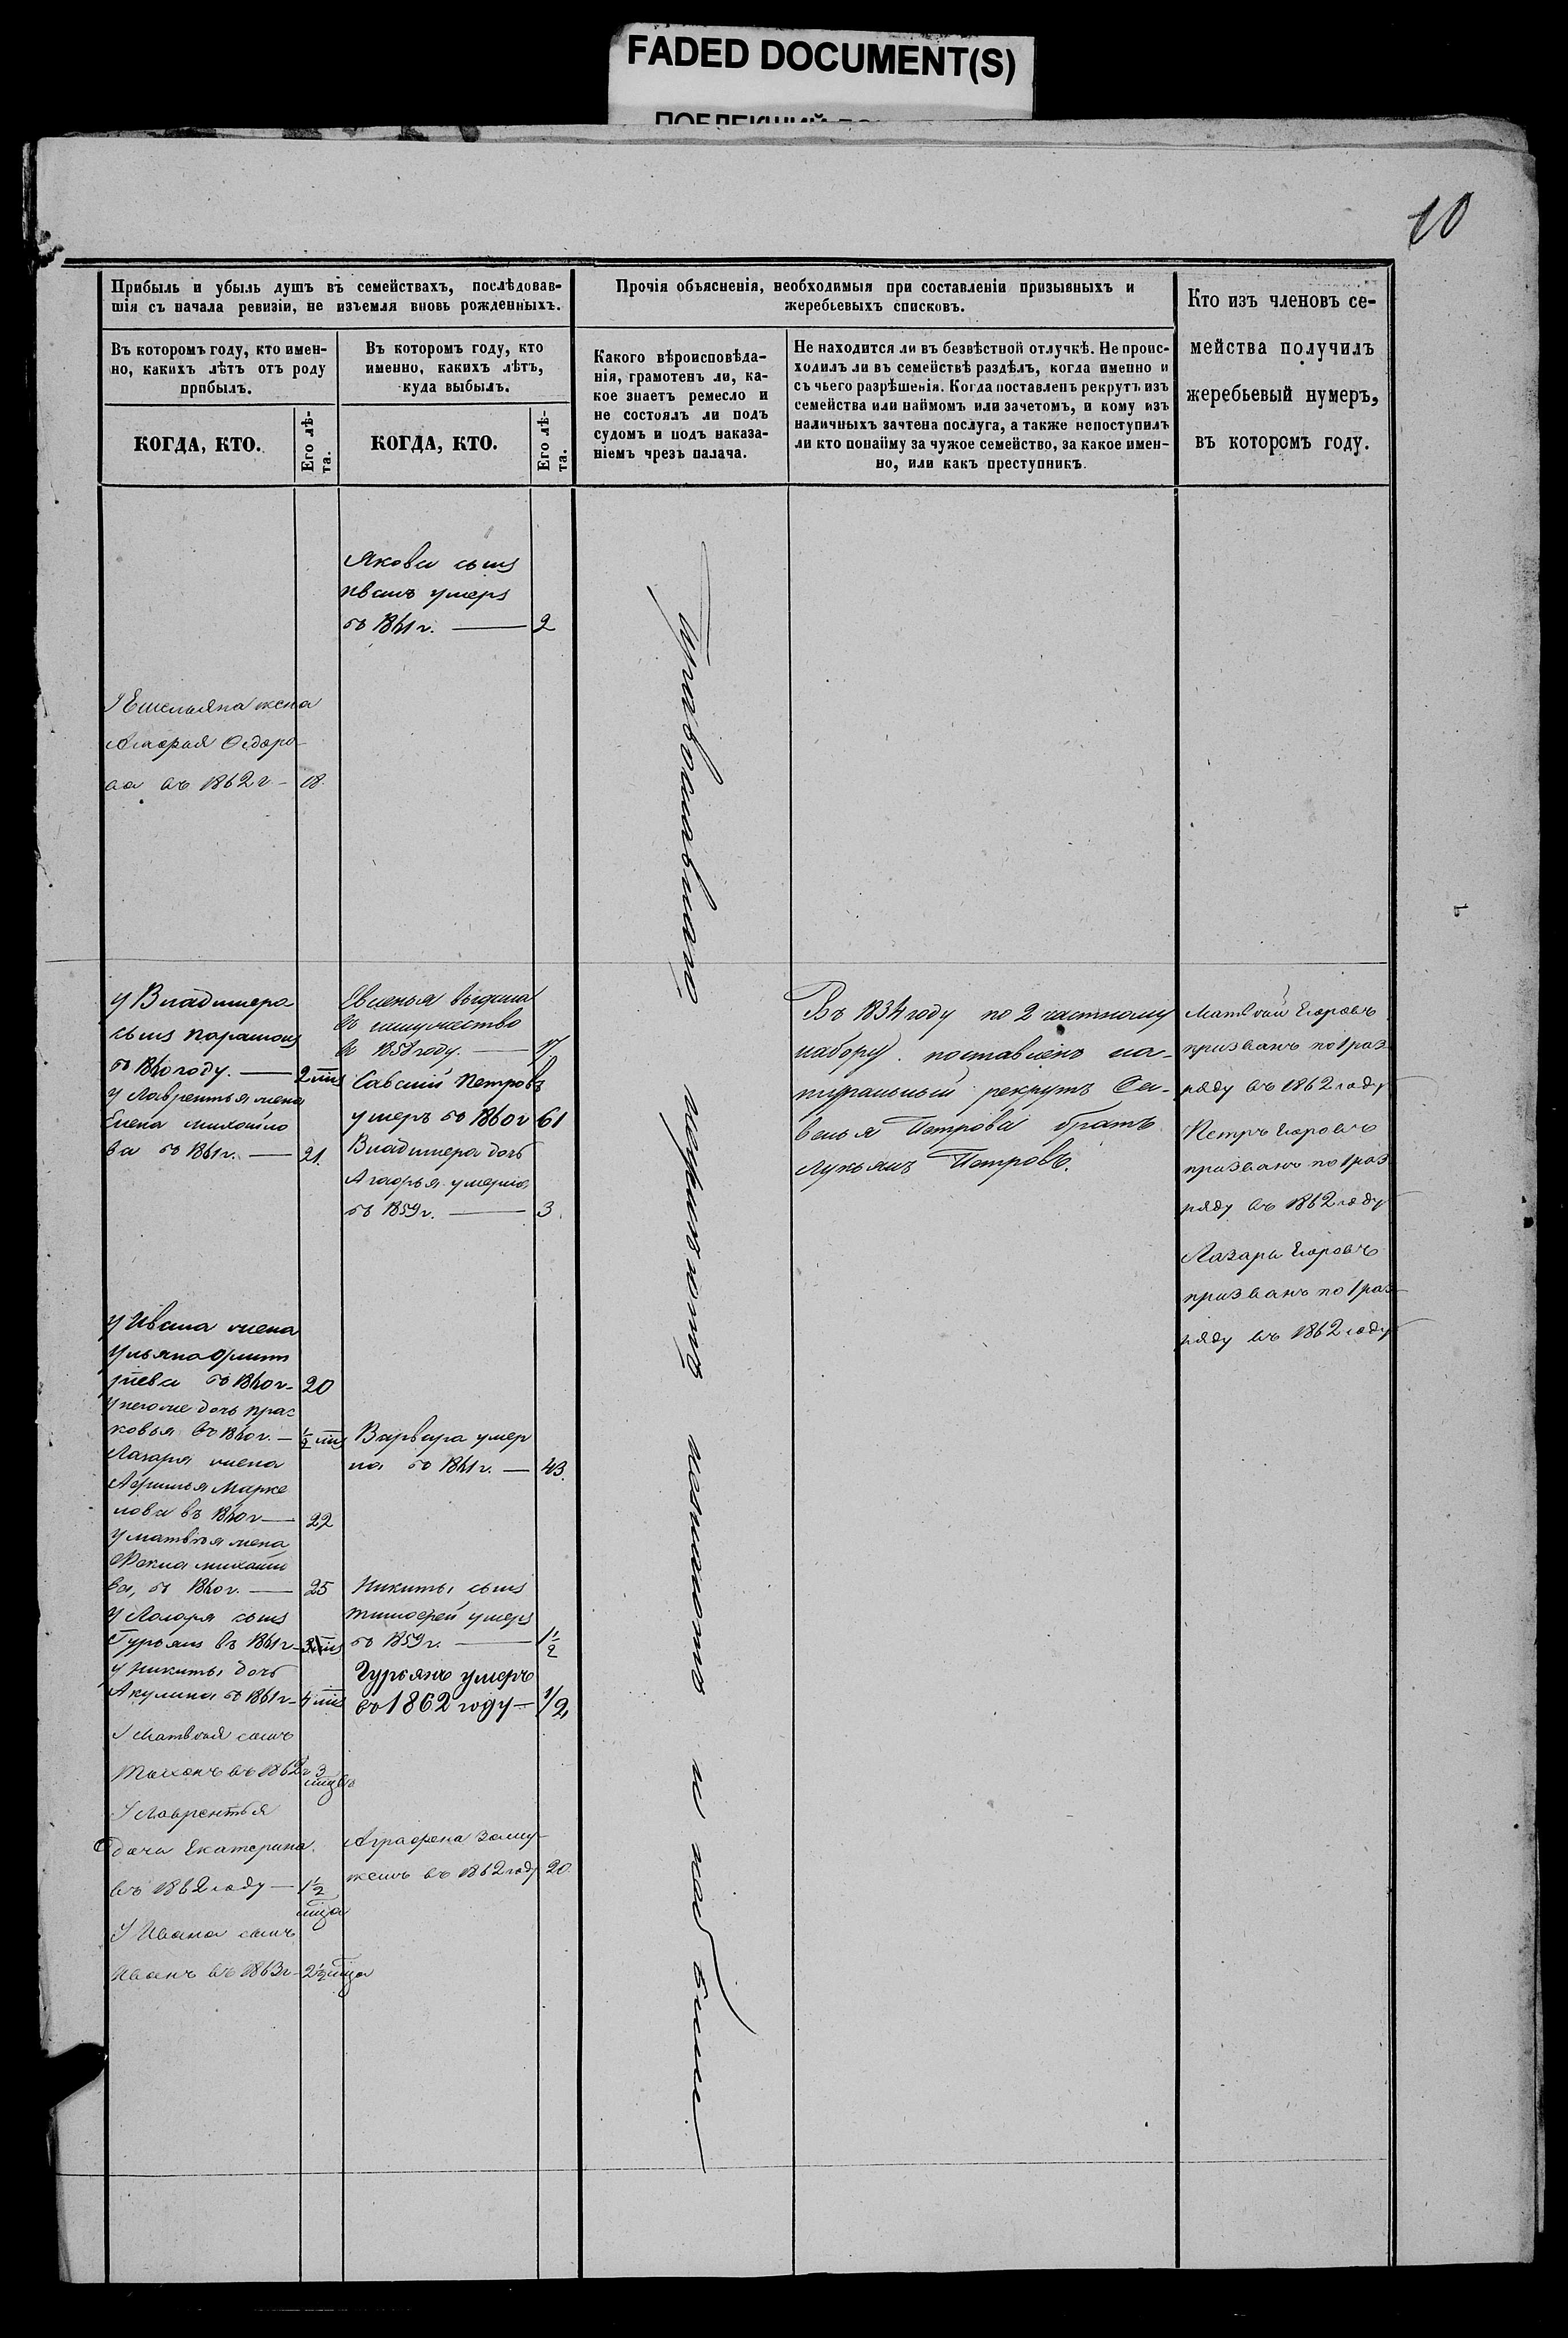 FADED DOCUMENT(S)
10
Прибыль и убыль душъ въ семействахъ, послѣдовав-
шія съ начала ревизіи, не изъемля вновь рожденныхъ.
Въ которомъ году, кто имен-
но, какихъ лѣтъ отъ роду
прибылъ.
КОГДА, КТО.
Его лѣ-
та.
Въ которомъ году, кто
именно, какихъ лѣтъ,
куда выбылъ.
КОГДА, КТО.
Его лѣ-
та.
Прочія объясненія, необходимыя при составленіи призывныхъ и
жеребьевыхъ списковъ.
Какого вѣроисповѣда-
нія, грамотенъ ли, ка-
кое знаетъ ремесло и
не состоялъ ли подъ
судомъ и подъ наказа-
ніемъ чрезъ палача.
Не находится ли въ безвѣстной отлучкѣ. Не проис-
ходилъ ли въ семействѣ раздѣлъ, когда именно и
съ чьего разрѣшенія. Когда поставленъ рекрутъ изъ
семейства или наймомъ или зачетомъ, и кому изъ
наличныхъ зачтена послуга, а также непоступилъ
ли кто понайму за чужое семейство, за какое имен-
но, или какъ преступникъ.
Кто изъ членовъ се-
мейства получилъ
жеребьевый нумеръ,
въ которомъ году.
У Емельяна жена
Ѳедоро-
ва въ 1862 г - 18.
у Владимера
сынъ парамонъ
въ 1860 году. — 2
у Лаврентья жена
Елена михайло
ва въ 1861 г. — 21.
у Ивана жена
ульяна
въ 1860 г - 20
дочь прас
ковья въ 1860 г. — 1/2
Лазаря жена
Афимья Марке
лова въ 1860 г — 22
у матвѣя жена
Фекла михайло
ва, въ 1860 г. — 25
у Лазаря сынъ
Гурьянъ въ 1861 г -
у никиты дочь
Акулина въ 1861 г - 4
У Матвѣя сынъ
въ 1862 г 3
У Лаврентья
дочь Екатерина
въ 1862 году — 1 1/2
мца
У Ивана сынъ
Иванъ въ 1863 г - 2 1/2 мца
Якова сынъ
иванъ умеръ
въ 1861 г. — 2
Евгенья выдана
въ замужество
въ 1858 году. — 17
Савелій Петровъ
умеръ въ 1860 г 61
Владимера дочь
умерла
въ 1859 г. — 3
Варвара умер
ла въ 1861 г. — 43.
Никиты сынъ
тимофей умеръ
въ 1859 г. — 1 1/2
Гурьянъ умеръ
въ 1862 году — 1/2
Аграфена заму-
жемъ въ 1862 году 20
Православнаго неграмотны
Въ 1834 году по 2 частному
набору поставленъ на-
туральный рекрутъ Са-
велья Петрова братъ
лукьянъ Петровъ.
Матвѣй Егоровъ
призванъ по 1 раз
ряду въ 1862 году
Петръ Егоровъ
призванъ по 1 раз
ряду въ 1862 году
Лазарь Егоровъ
призванъ по 1 раз-
ряду въ 1862 году